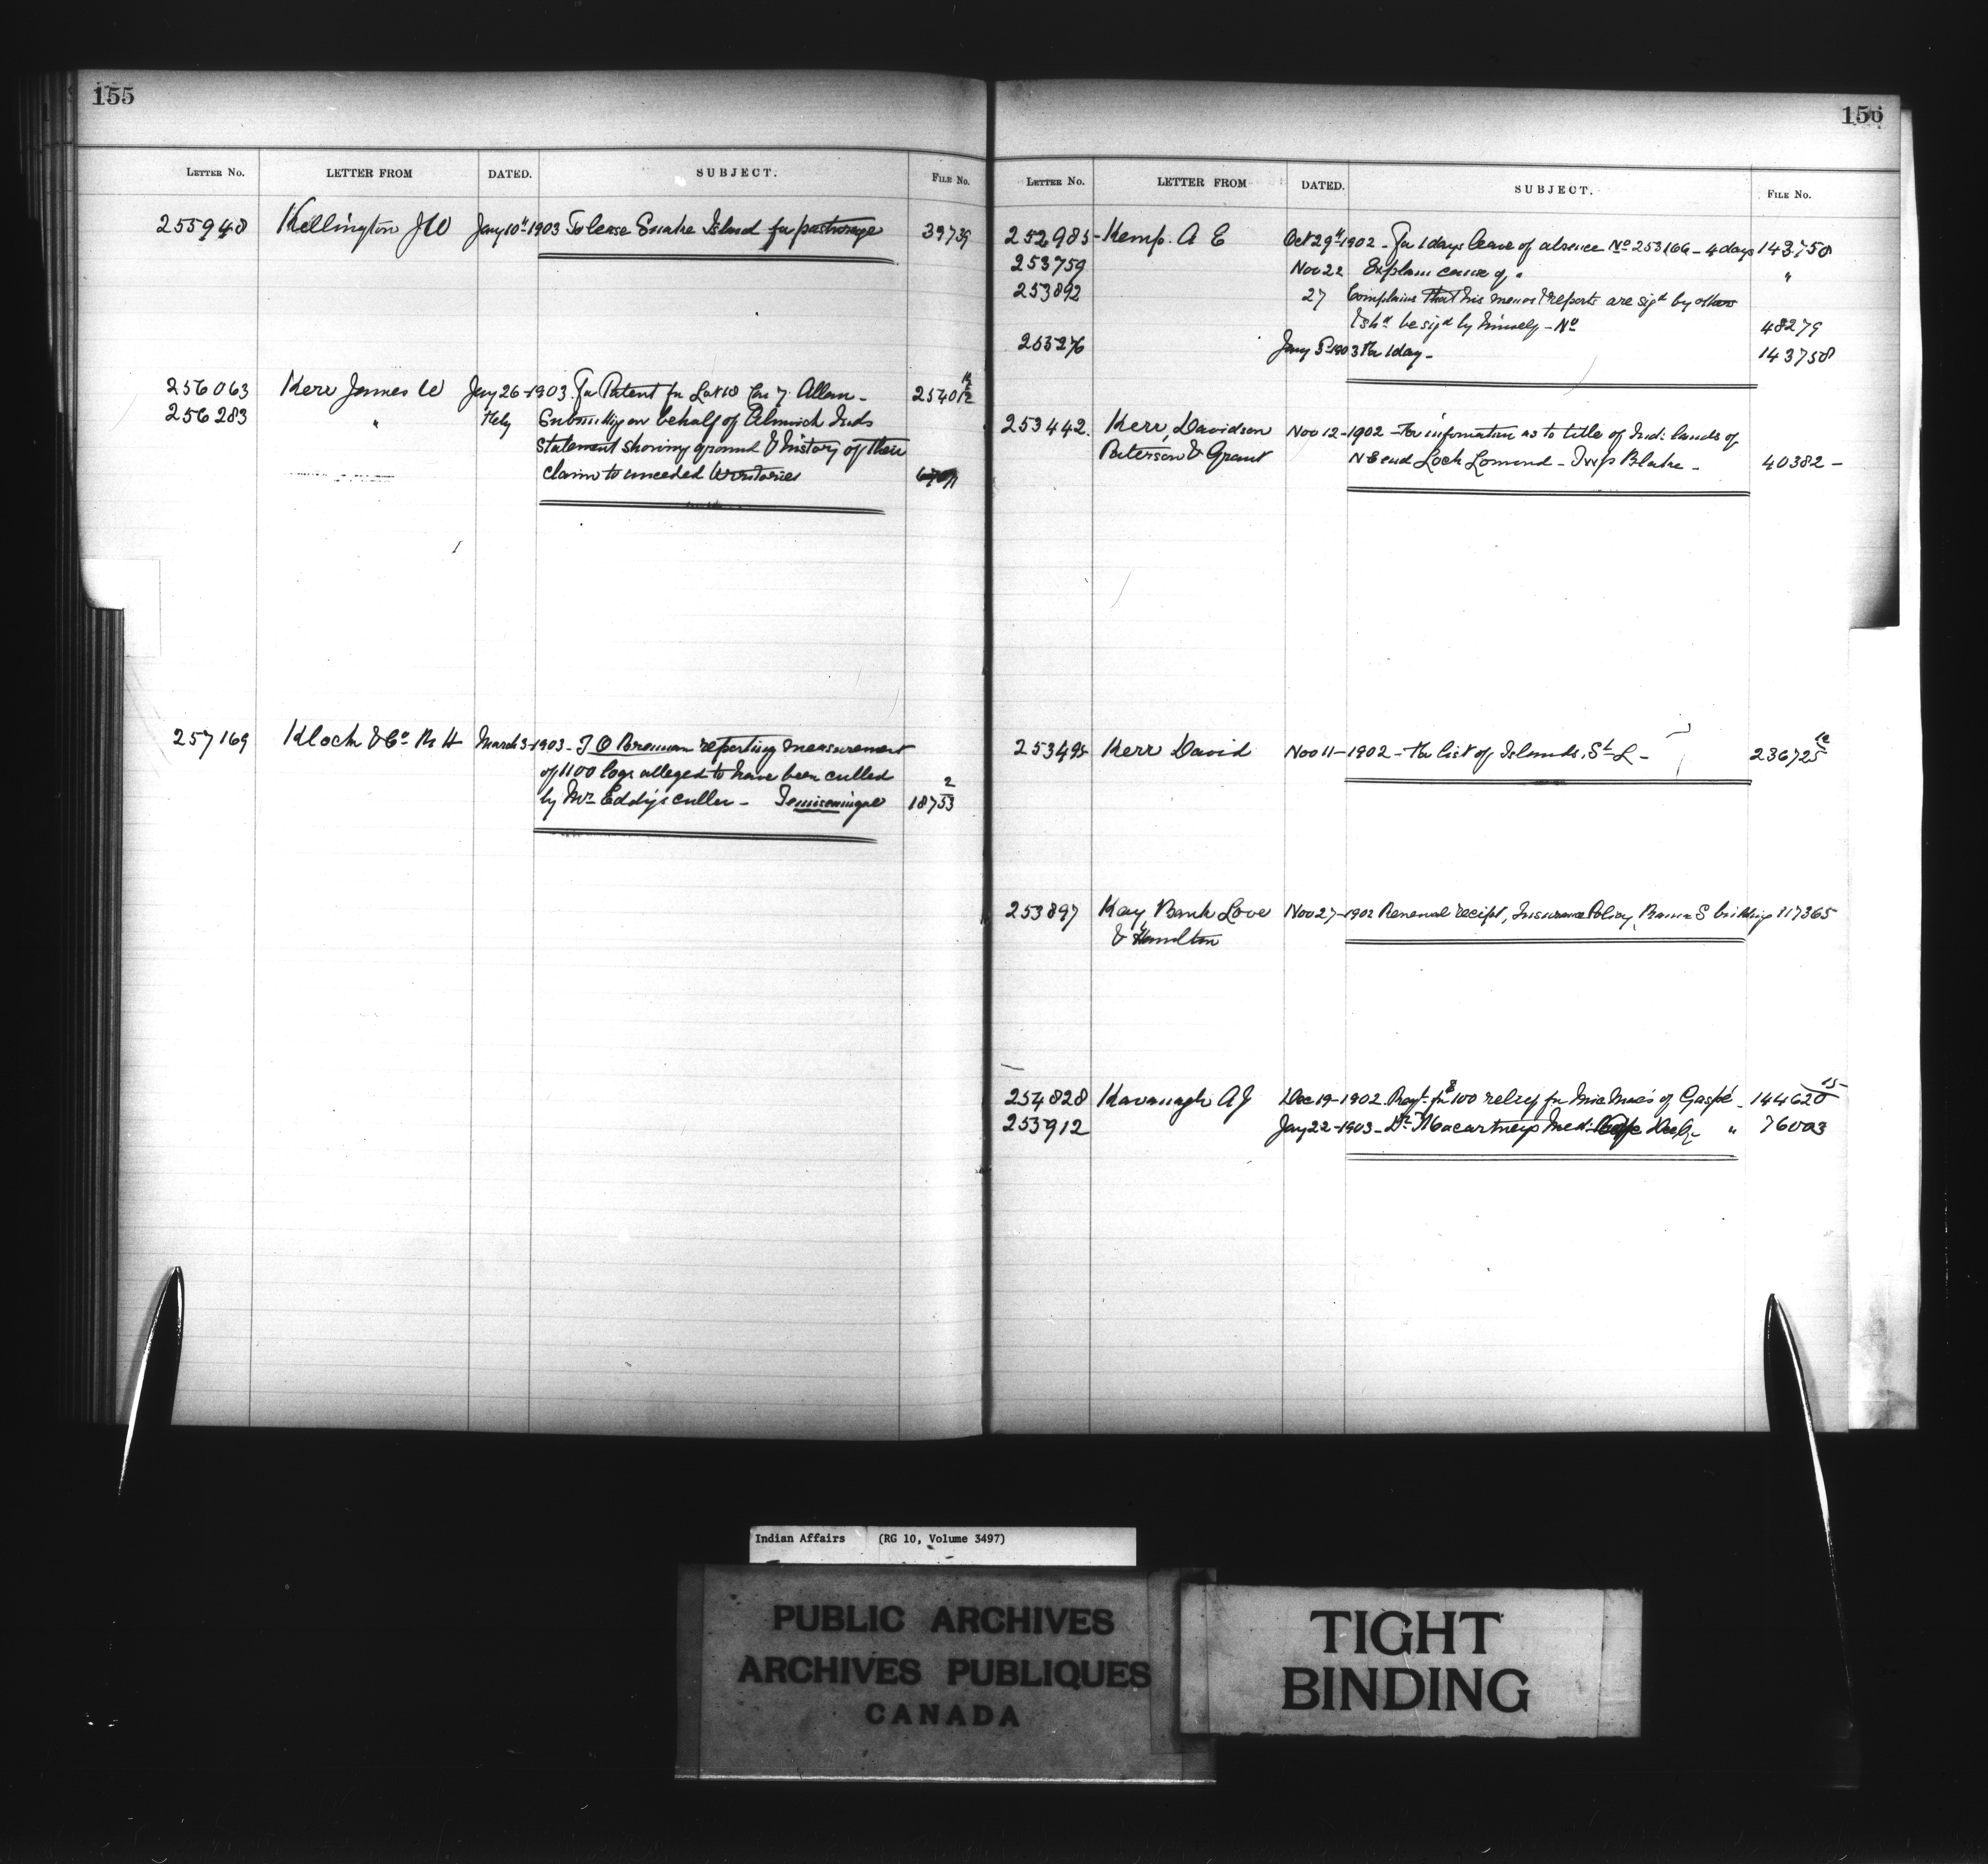 155
LETTER No. LETTER FROM DATED. SUBJECT. FILE No.
255948 Kellington J W Jany 10" 1903 To lease Snake Island for pasturage 39739
256063 Kerr James W Jany 26-1903. For Patent for Lot 10 Con 7. Allan -
256283 " Feby Submitting on behalf of Alnwick Inds
statement showing ground & history of their
claim to unceded territories
257169 Klock & Co R H March 3-1903- J O Brennan reporting measurement
of 1100 logs alleged to have been culled
by Mr Eddy's culler - Temiscamingue 18753 2
156
LETTER No. LETTER FROM DATED. SUBJECT. FILE No.
252985 Kemp. A E Oct 29" 1902 - For 1 days leave of absence No 253166 - 4 days 143750
253759 Nov 22 Explain cause of " "
253892 27 Complains that his memos & reports are sigd by others
& shd be sigd by himself - No 48279
Jany 1903 For 1 day - 143758
253442. Kerr, Davidson Nov 12-1902 - For information as to title of Ind: lands of
Paterson & Grant N E end Loch Lomond - Twp Blake - 40382 -
253495 Kerr David Nov 11-1902 - For list of Islands, St L - 236725
253897 Kay, Bank Love Nov 27-1902 Renewal receipt, Insurance Policy, building 117365
& Hamilton
254828 Kavanagh A J Dec 19-1902. Reqt. for $100 relief for Mic Macs of Gaspé - 144620 15
253912 Jany 22-1903 - Dr Macartneys Med: " 76003
Indian Affairs (RG 10, Volume 3497)
PUBLIC ARCHIVES
ARCHIVES PUBLIQUES
CANADA
TIGHT
BINDING